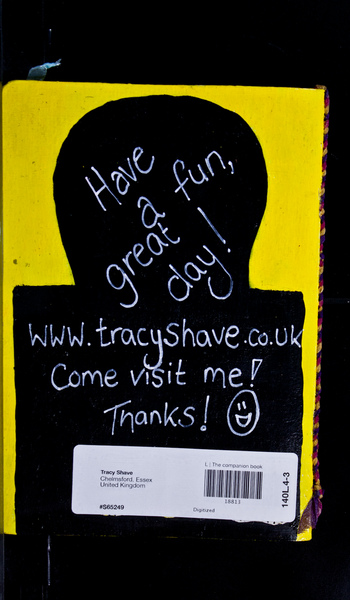 Have fun,
a
great
day!
www.tracyshave.co.uk
Come visit me!
Thanks!
Tracy Shave
Chelmsford, Essex
United Kingdom
#S65249
L | The companion book
18813
Digitized
140L.4-3